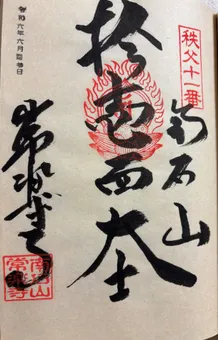 秩父十一番
南石山
拾壹面大士
常楽寺
南石山
常楽寺
令和六年六月